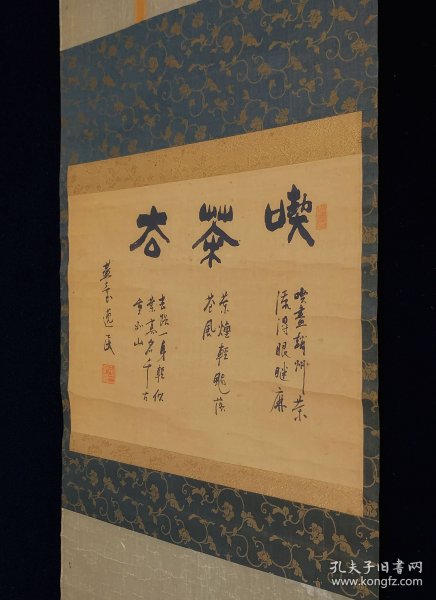 喫茶去
喫盡趙州茶
得眼睫麻
茶煙輕颺落
花風
去路一身輕似
葉高名千古
重於山
逸民
孔夫子旧书网
www.kongfz.com